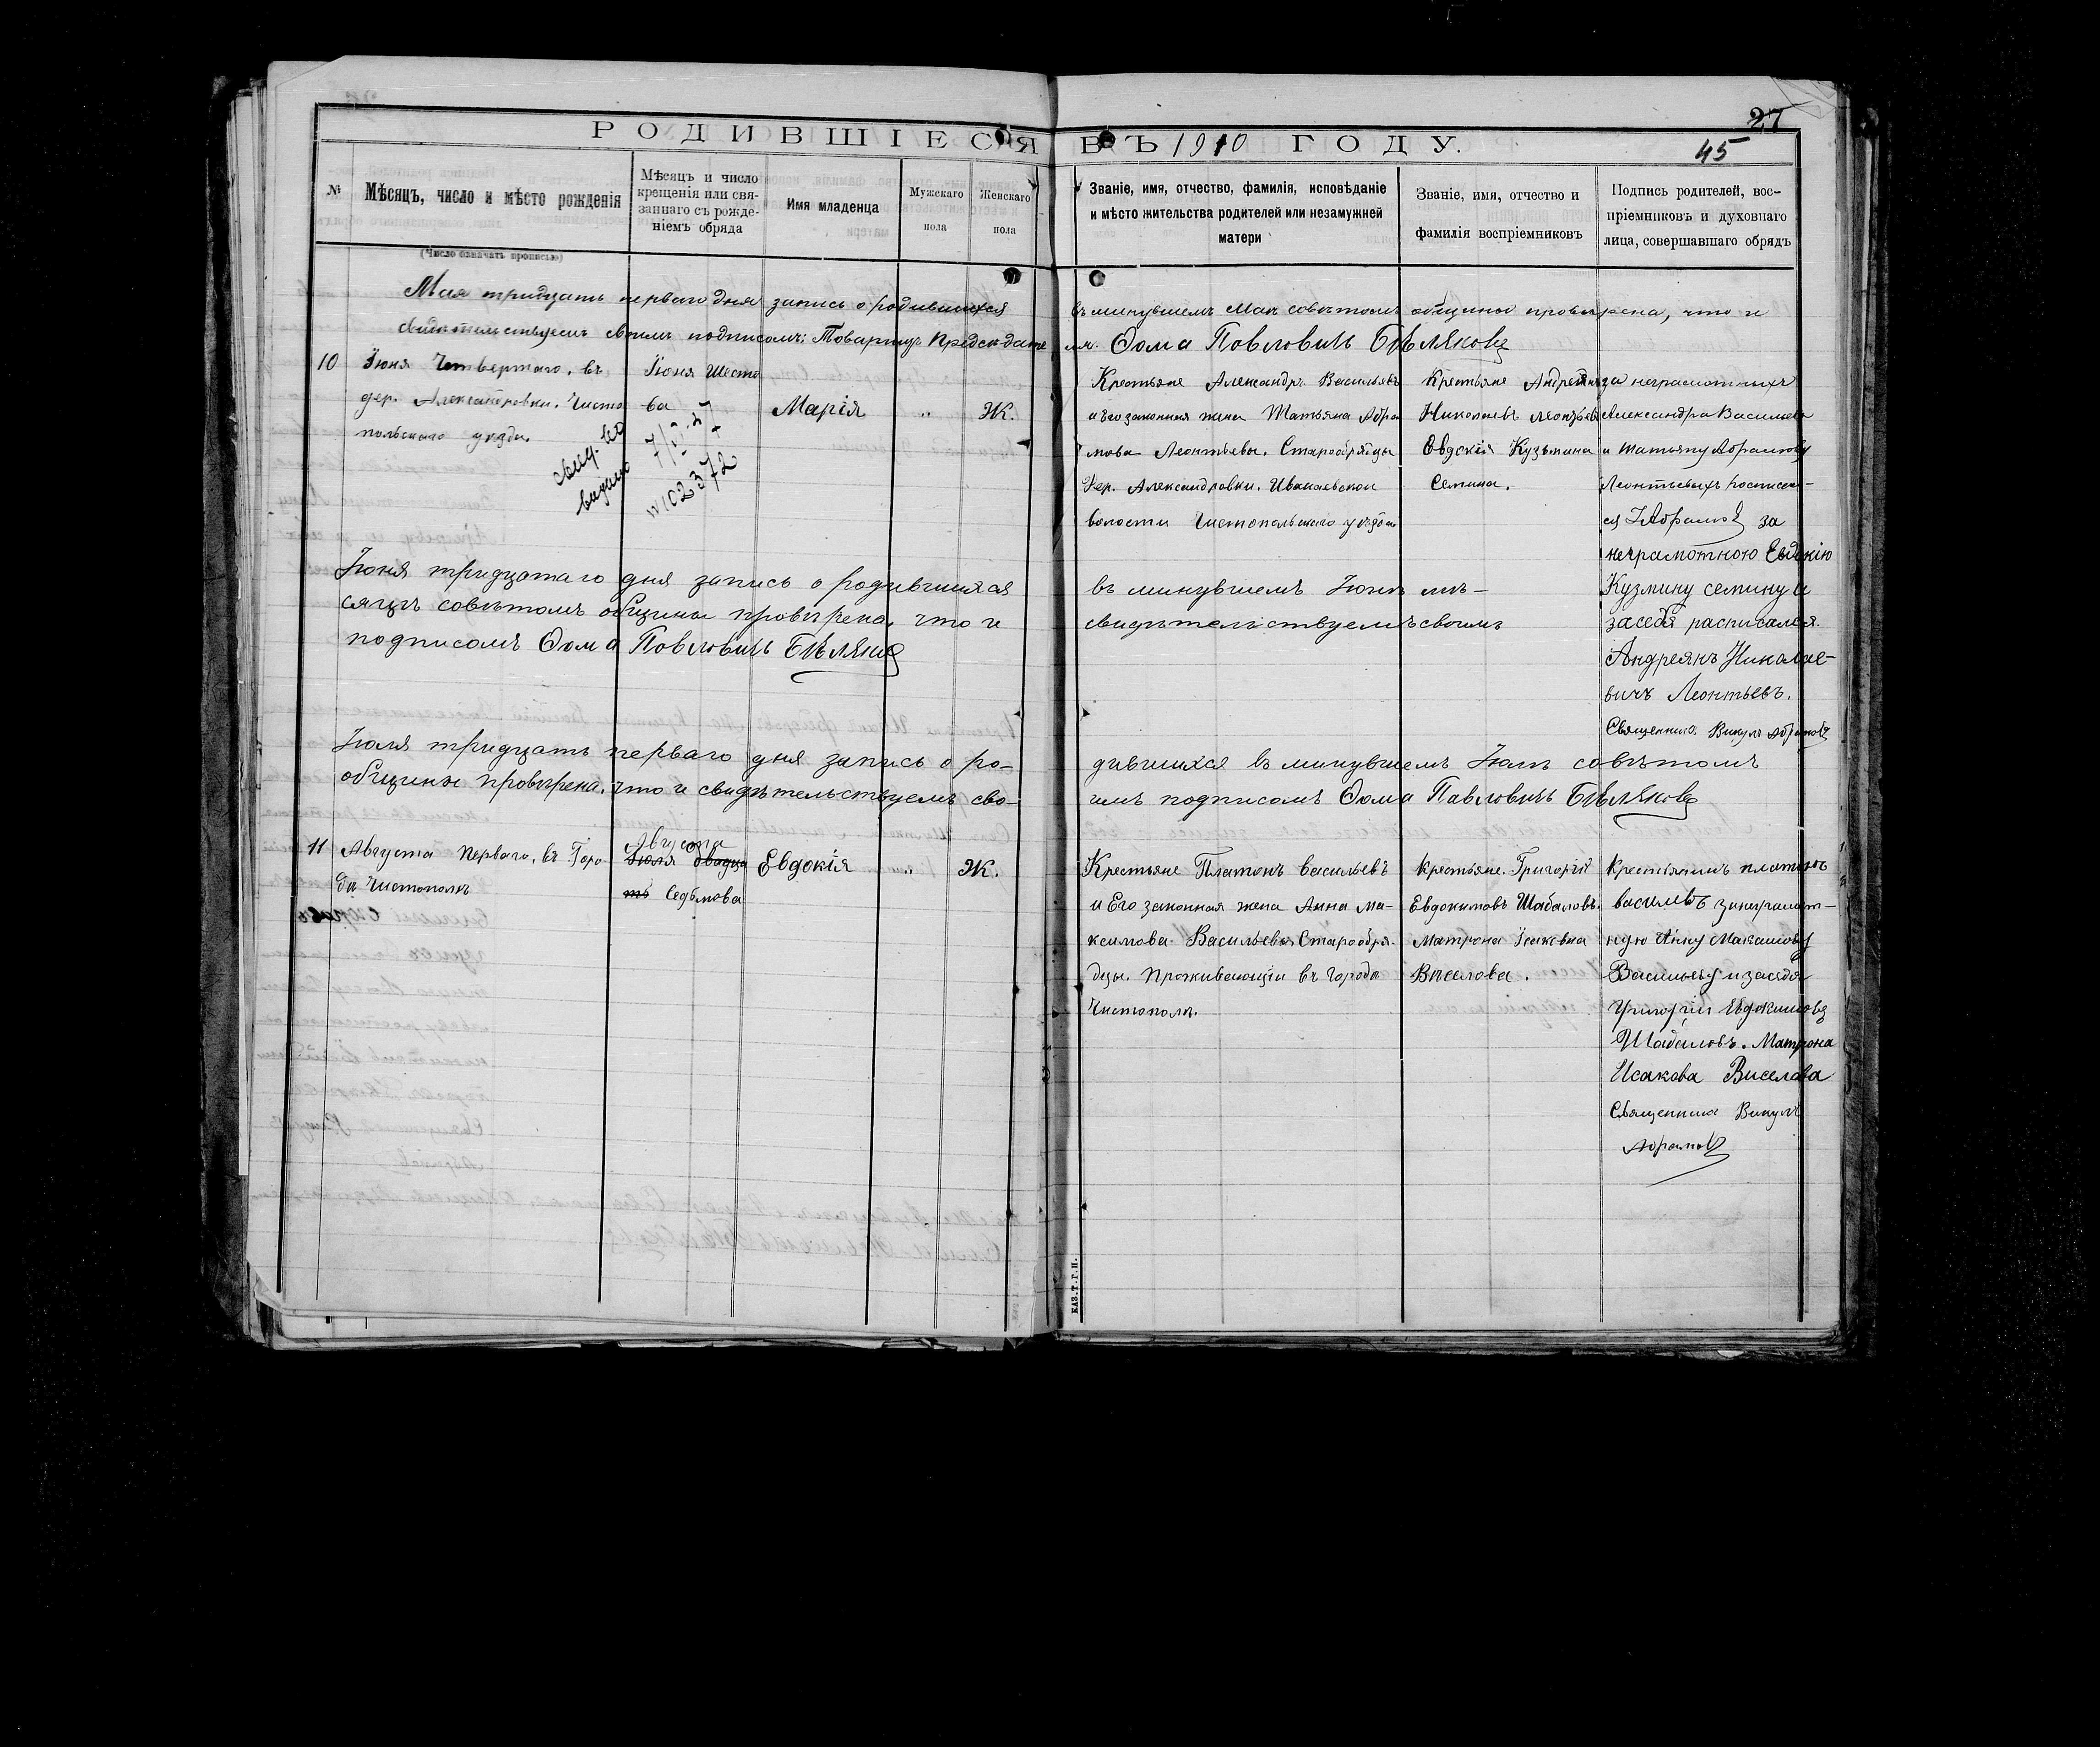 27
РОДИВШІЕСЯ ВЪ 1910 ГОДУ.
45
№
Мѣсяцъ, число и мѣсто рожденія
Мѣсяцъ и число
крещенія или свя-
заннаго съ рожде-
ніемъ обряда
Имя младенца
Мужскаго
пола
Женскаго
пола
Званіе, имя, отчество, фамилія, исповѣданіе
и мѣсто жительства родителей или незамужней
матери
Званіе, имя, отчество и
фамилія воспріемниковъ
Подпись родителей, вос-
пріемниковъ и духовнаго
лица, совершавшаго обрядъ
(Число означать прописью)
Мая тридцать перваго дня запись о родившихся въ минувшемъ Маѣ совѣтомъ общины провѣрена, что и
свидѣтельствуемъ своимъ подписомъ: Товарищъ Предсѣдате ля. Ѳома Павловичъ Бѣляковъ
10
Іюня Четвертаго, въ
дер. Александровки, Чисто
польскаго уѣзда.
Іюня Шесто
ва
Марія
„
Ж.
свид. но
выдано
7/V-27
№ 102372
Крестьяне Александръ Васильевъ
и его законная жена Татьяна Абра
мова Леонтьевы. Старообрядцы
Дер. Александровки. Ивашевской
волости Чистопольскаго уѣзда
Крестьяне Андреянъ
Николаевъ Леонтьевъ
Евдокія Кузьмина
Семина.
за неграмотныхъ
Александра Васильева
и Татьяну Абрамову
Леонтьевыхъ росписал-
ся Абрамовъ за
неграмотною Евдокію
Кузмину семину и
засебя расписался.
Андреянъ Николае-
вичъ Леонтьевъ.
Священникъ Викулъ Абрамовъ
Іюня тридцатаго дня запись о родившихся въ минувшемъ Іюнѣ мѣ-
сяцѣ совѣтомъ общины провѣрена, что и свидѣтельствуемъ своимъ
подписомъ Ѳома Павловичъ Бѣляковъ
Іюля тридцать перваго дня запись о ро- дившихся въ минувшемъ Іюлѣ совѣтомъ
общины провѣрена, что и свидѣтельствуемъ сво- имъ подписомъ Ѳома Павловичъ Бѣляковъ
11
Августа Перваго, въ Горо
дѣ Чистополѣ
Августа
Іюля двадца
ть Седьмова
Евдокія
„
Ж.
Крестьяне Платонъ Васильевъ
и Его законная жена Анна Ма-
ксимова Васильевы, Старообря-
дцы. Проживающіи въ Городѣ
Чистополѣ.
Крестьяне. Григорій
Евдокимовъ Шабаловъ.
Матрона Исаковна
Виселова.
Крестьянинъ платонъ
василивъ за неграмот-
ную Анну Максимову
Васильеву и засебя
Григорій Евдокимовъ
Шабаловъ. Матрона
Исакова Виселова
Священникъ Викулъ
Абрамовъ
КАЗ.Т.Г.П.